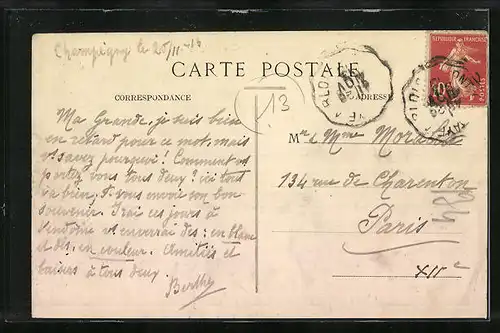 Champigny le 25/11
CARTE POSTALE
CORRESPONDANCE
ADRESSE
13
RÉPUBLIQUE FRANÇAISE
10
POSTES
Ma Grande, je suis bien
en retard pour ce mot, mais
tu sauras pourquoi! Comment vous
portez vous tous deux? ici tout
va bien, et vous envoie son bon
souvenir. J'irai ces jours à
Vendôme et enverrai des: en blanc
et des: en couleur. Amitiés et
baisers à tous deux.
Berthe
Mr & Mme
134 rue de Charenton
Paris
XIIe